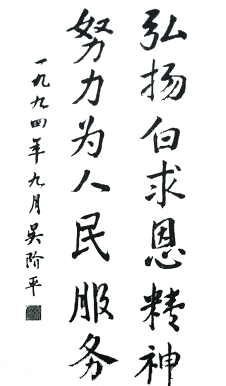 弘扬白求恩精神
努力为人民服务
一九九四年九月吴阶平